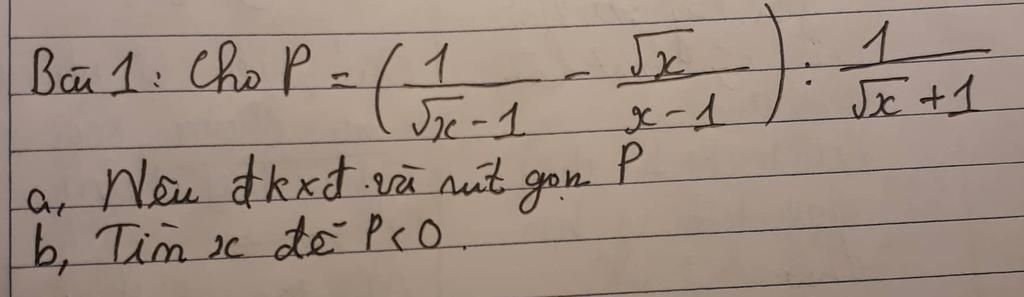 Bài 1: Cho P = (1/(√x - 1) - √x/(x - 1)) : 1/(√x + 1)
a, Nêu đkxđ và rút gọn P
b, Tìm x để P < 0.